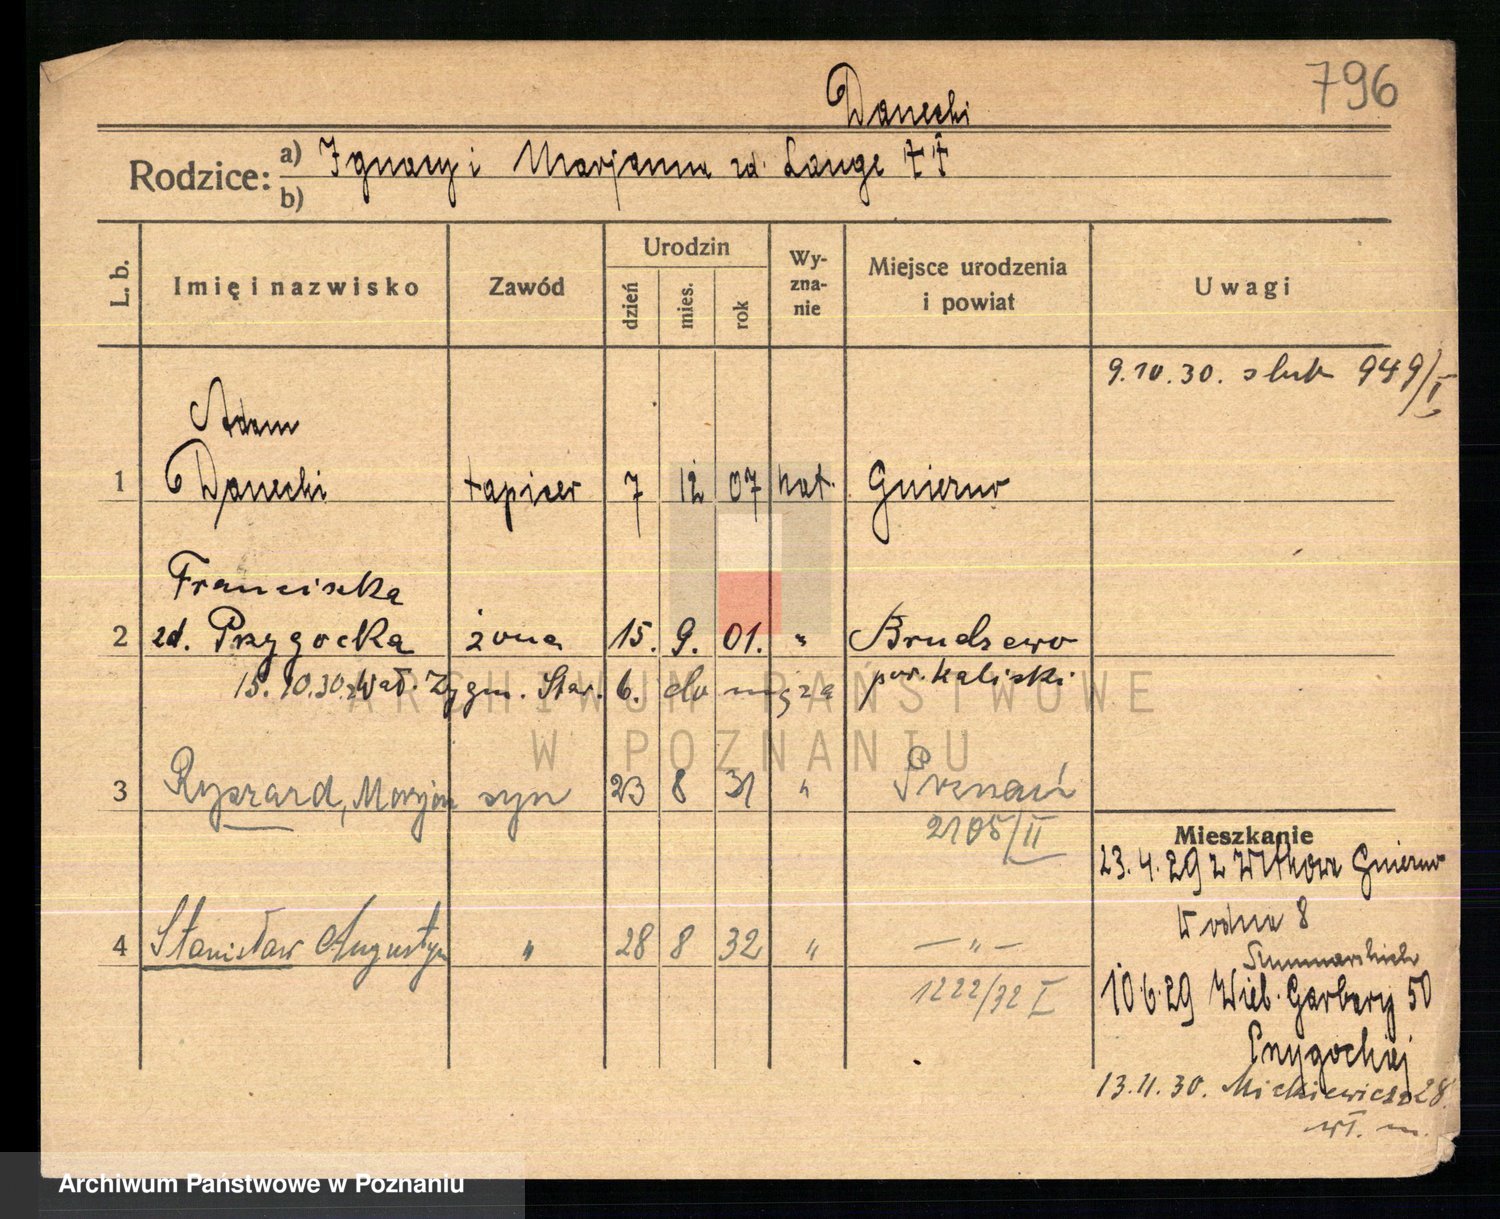 796
Danecki
Rodzice: a) Ignacy i Marjanna zd. Lange ††
b)
L. b. Imię i nazwisko Zawód Urodzin dzień mies. rok Wy-zna-nie Miejsce urodzenia i powiat Uwagi
9.10.30. slub 949/I
Adam
1 Danecki tapicer 7 12 07 kat. Gniezno
Franciszka
2 zd. Przygocka żona 15. 9. 01. " Brudzewo
15.10.30 z Wał. Zygm. Star. 6. do męża pow. kaliski
3 Ryszard, Marjan syn 23 8 31 " Poznań
2105/II
4 Stanisław Augustyn " 28 8 32 " — " —
1222/32 I
Mieszkanie
23.4.29 z Witkowa Gniezno
Wodna 8
10.6.29 Wielk. Garbary 50
Przygockiej
13.11.30. Mickiewicza 28.
wł. m.
ARCHIWUM PAŃSTWOWE
W POZNANIU
Archiwum Państwowe w Poznaniu